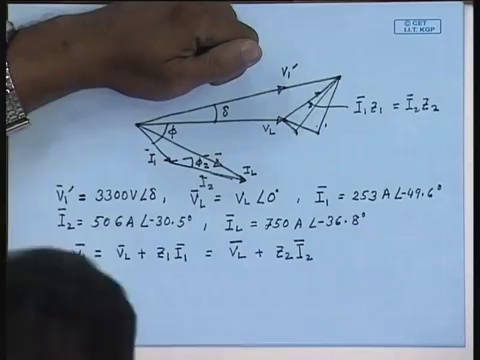 © CET
I.I.T. KGP
V̄₁′
δ
V̄L
Ī₁Z₁ = Ī₂Z₂
φ
Ī₁
φ₂
IL
Ī₂
V̄₁′ = 3300V∠δ , V̄L = VL∠0° , Ī₁ = 253 A∠-49.6°
Ī₂ = 506 A∠-30.5° , ĪL = 750 A∠-36.8°
= V̄L + Z₁Ī₁ = V̄L + Z₂Ī₂